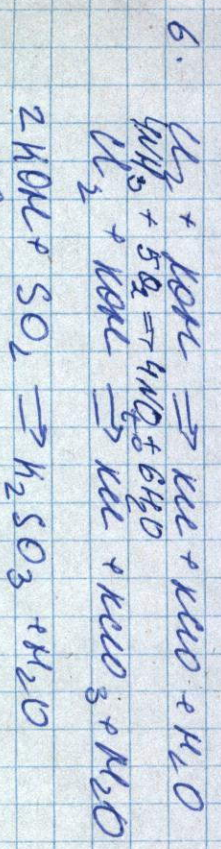 6. Cl₂ + KOH ⇒ KCl + KClO + H₂O
4NH₃ + 5O₂ ⇒ 4NO₂ + 6H₂O
Cl₂ + KOH ⇒ KCl + KClO₃ + H₂O
2KOH + SO₂ ⇒ K₂SO₃ + H₂O